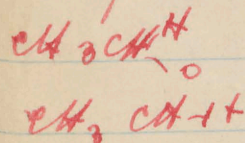 CH3CH H
O
CH3 CH-H